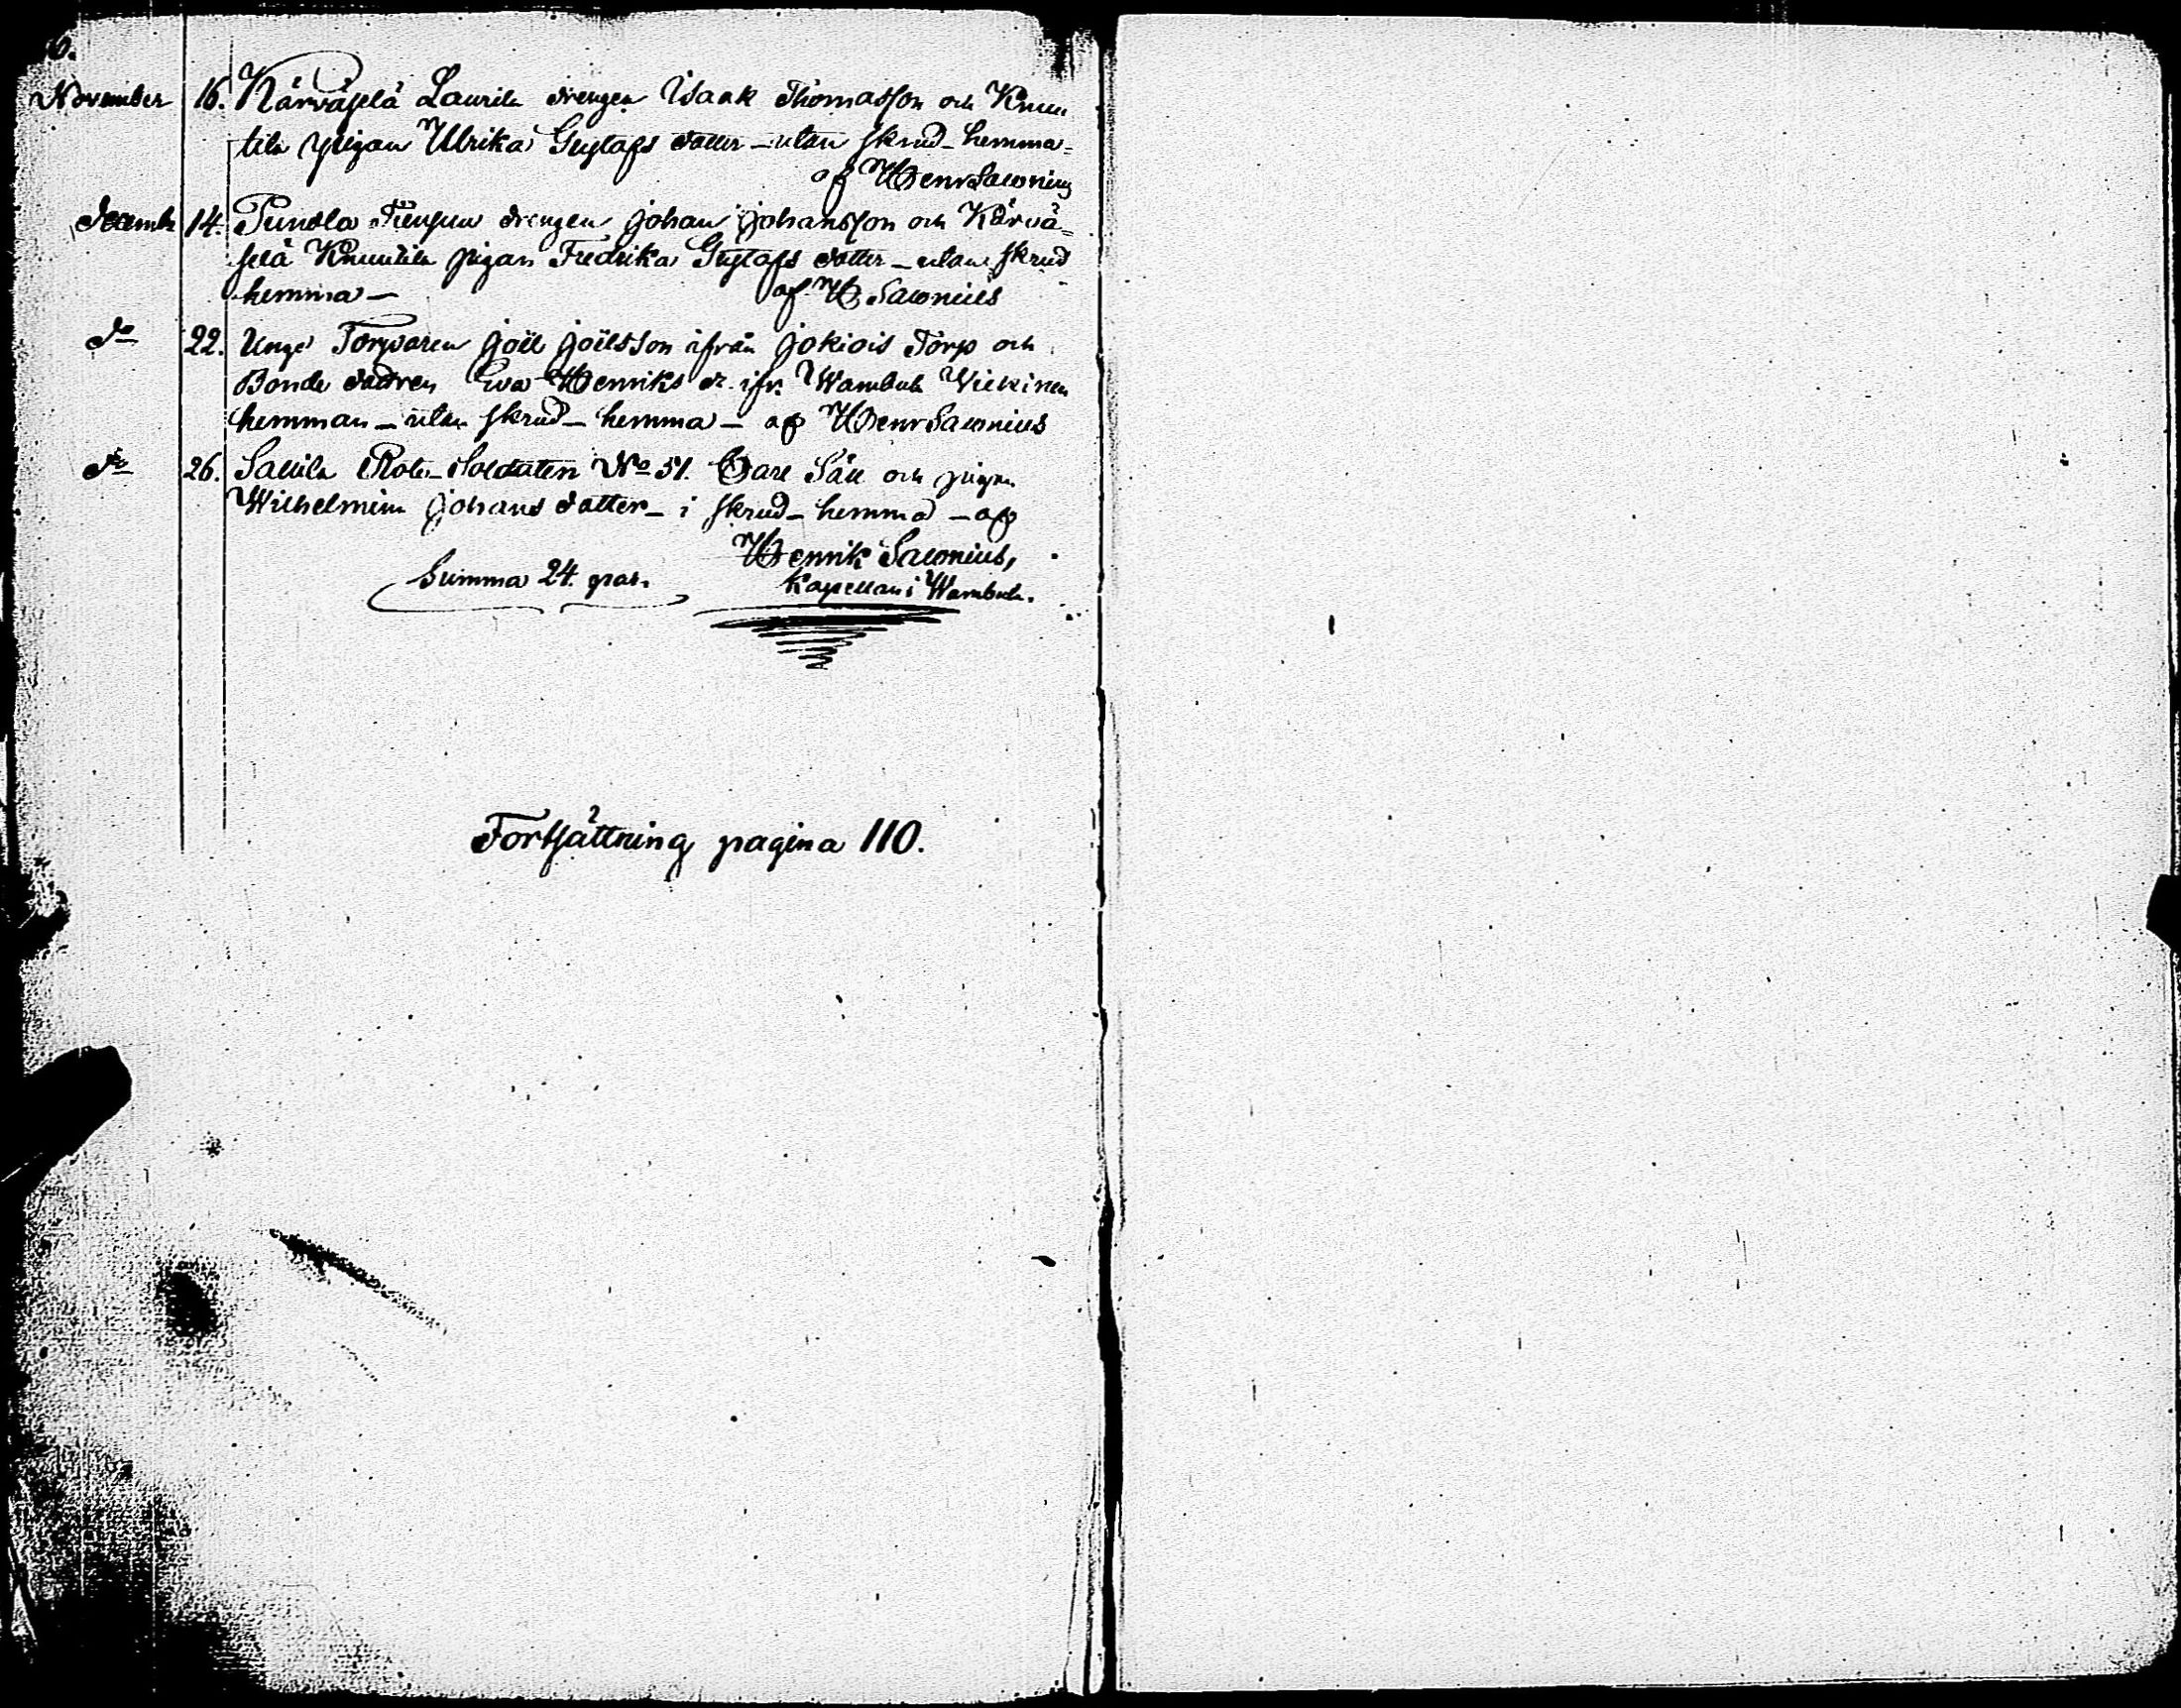 November 16. Kärväselä Laurila drengen Isaak Thomasson och Knuu
tila pigan Ulrika Gustafs dotter – utan skrud – hemma –
af Henr Sawonius
December 14. Pundola drengen Johan Johansson och Kärvä=
selä Knuutila pigan Fredrika Gustafs dotter – utan skrud
hemma – af H Sawonius
do 22. Unge Torparen Joel Joelsson ifrån Jokiois Torp och
Bonde dottren Eva Henriks dr. ifr. Wambula Wiekinen
hemman – utan skrud – hemma – af Henr Sawonius
do 26. Sallila Rote-Soldaten No 51. Carl Säll och pigan
Wilhelmina Johans dotter – i skrud – hemma – af
Henrik Sawonius,
Summa 24. par. Kapellan i Wambula.
Fortsättning pagina 110.